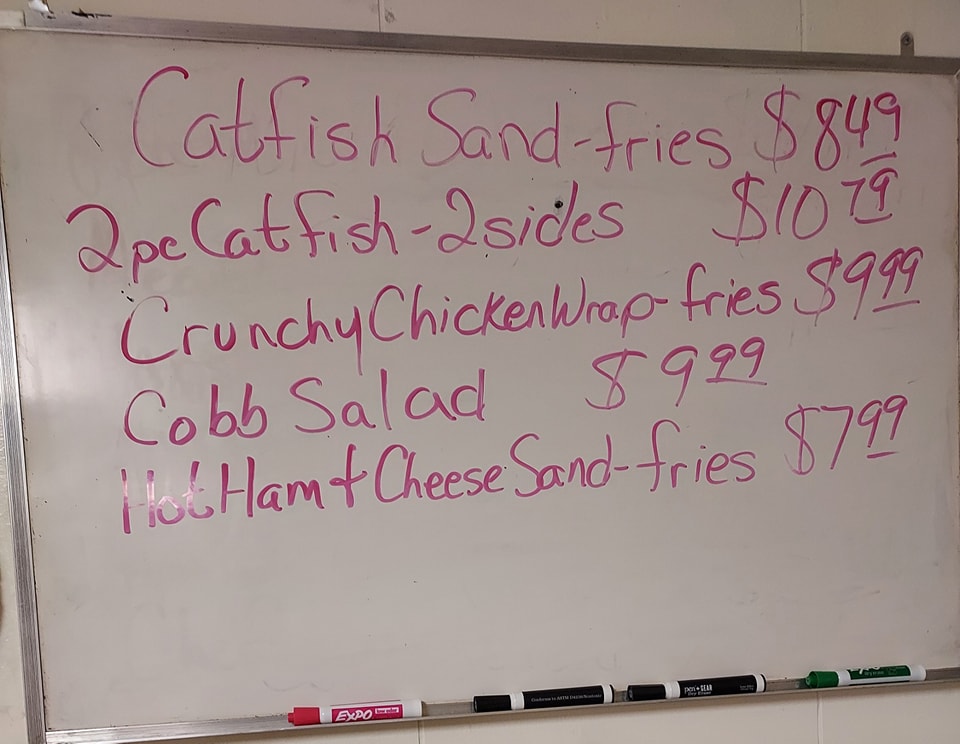 Catfish Sand-fries $8.49
2pc Catfish-2sides $10.79
Crunchy Chicken Wrap-fries $9.99
Cobb Salad $9.99
Hot Ham & Cheese Sand-fries $7.99
EXPO
pen+GEAR
EXPO